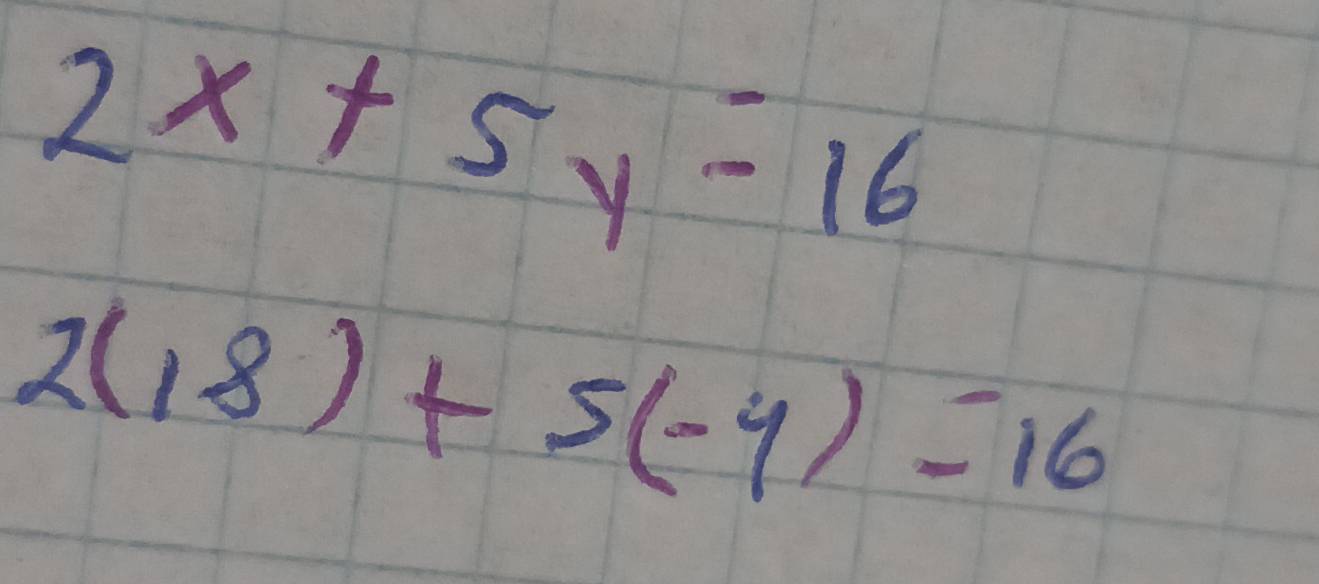 2x + 5y = 16
2(18) + 5(-4) = 16